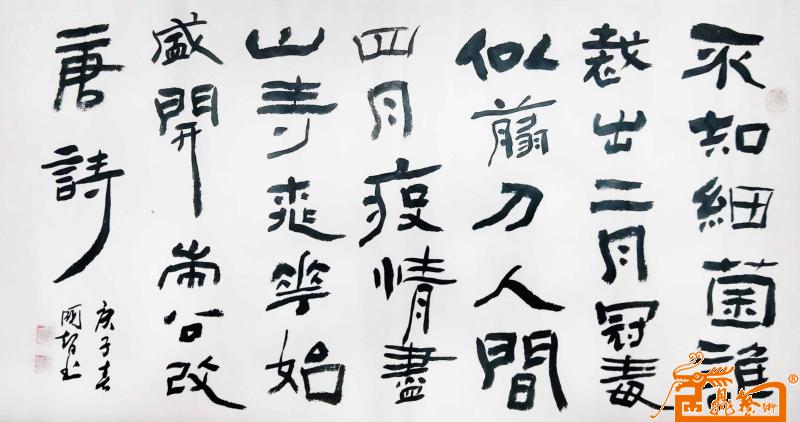 不知細菌誰
裁出二月冠毒
似剪刀人間
四月疫情盡
山寺桃華始
盛開 公改
唐詩
庚子春
國智书
藝術